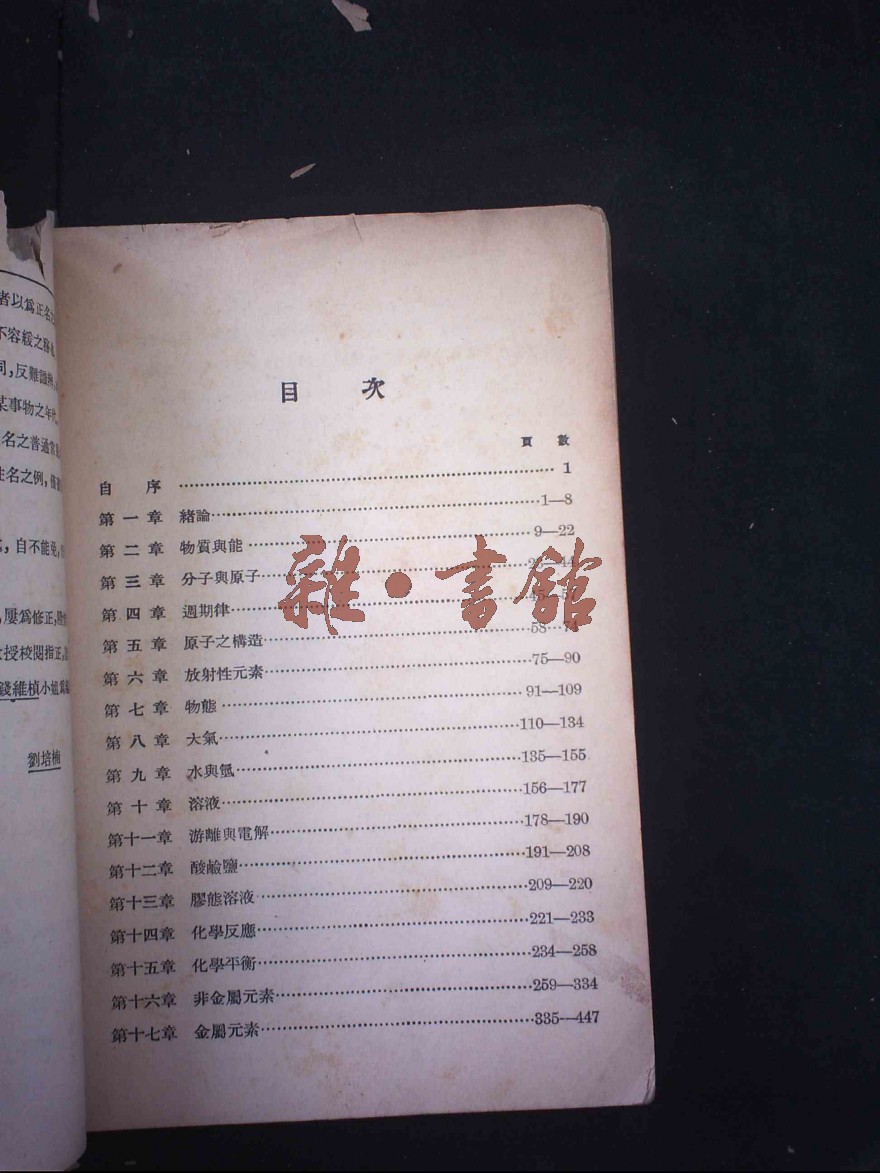 者以爲正名之
不容緩之務
同,反難識
某事物之年代
名之普通常
姓名之例,
自不能免,
屢爲修正,
授校閱指正,
錢維楨小姐
劉培楠
目 次
頁 數
自 序 1
第一章 緒論 1—8
第二章 物質與能 9—22
第三章 分子與原子 23—44
第四章 週期律 45—57
第五章 原子之構造 58—74
第六章 放射性元素 75—90
第七章 物態 91—109
第八章 大氣 110—134
第九章 水與氫 135—155
第十章 溶液 156—177
第十一章 游離與電解 178—190
第十二章 酸鹼鹽 191—208
第十三章 膠態溶液 209—220
第十四章 化學反應 221—233
第十五章 化學平衡 234—258
第十六章 非金屬元素 259—334
第十七章 金屬元素 335—447
雜·書館